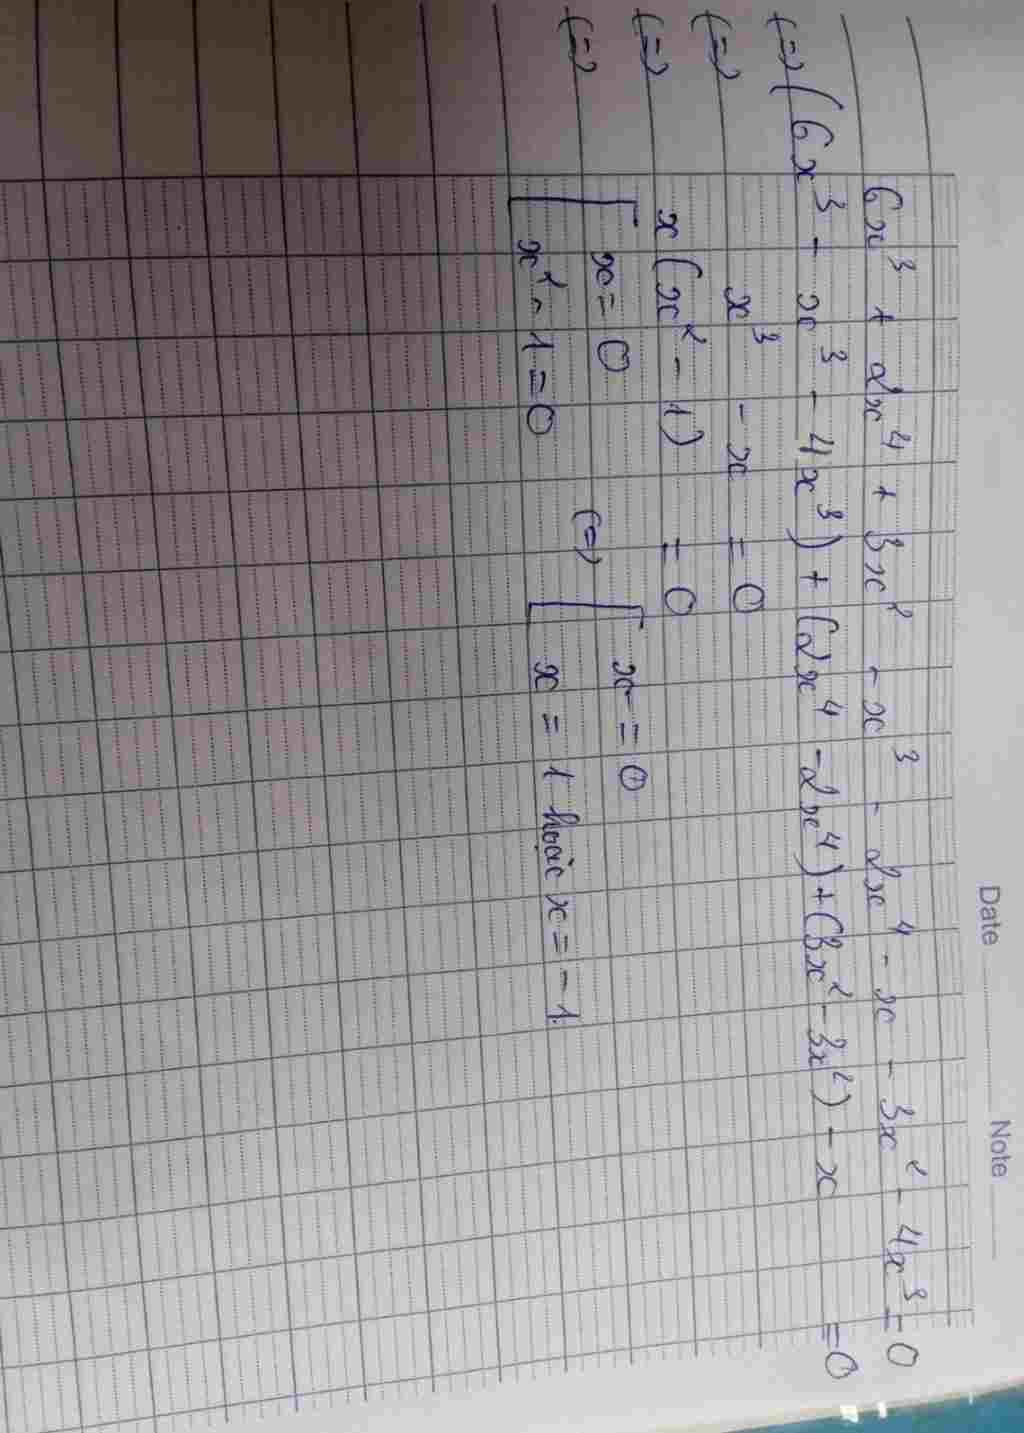 Date Note
6x³ + 2x⁴ + 3x² - x³ - 2x⁴ - x - 3x² - 4x³ = 0
(=) (6x³ - x³ - 4x³) + (2x⁴ - 2x⁴) + (3x² - 3x²) - x = 0
(=) x³ - x = 0
(=) x(x² - 1) = 0
(=) [ x = 0 (=) [ x = 0
x² - 1 = 0 x = 1 hoặc x = -1.